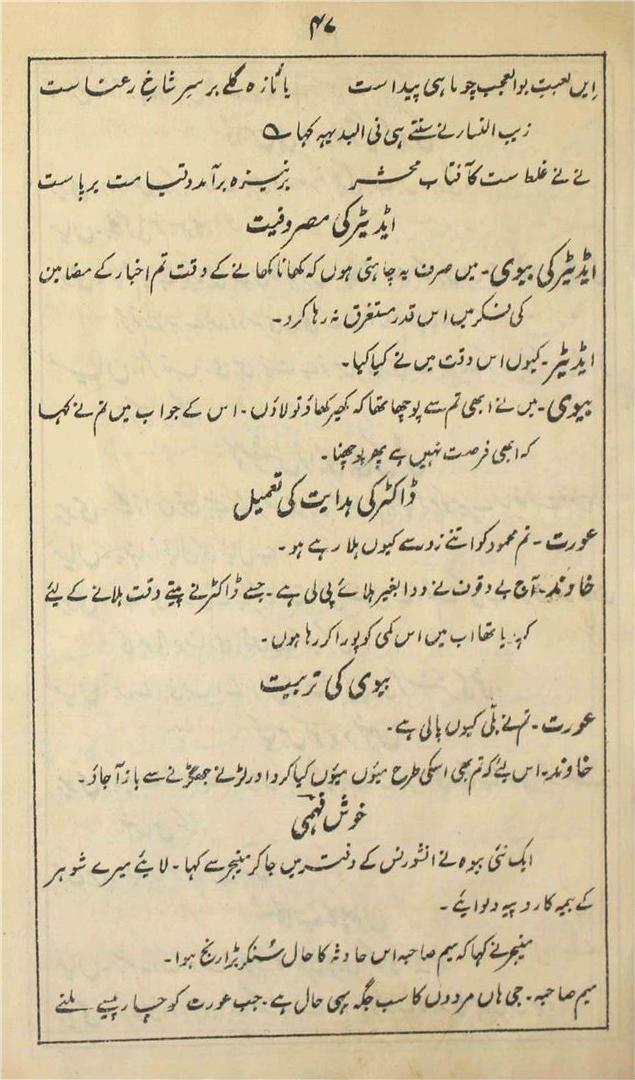 ۴۷
ایں لعبت بوالعجب چو ماہی پیدا ست یا تازہ گلے بر سرِ شاخِ رعنا ست
زیب النسا نے سنتے ہی فی البدیہہ کہا ؎
نے نے غلط ست کآفتابِ محشر بر نیزہ برآمد و قیامت برپاست
ایڈیٹر کی مصروفیت
ایڈیٹر کی بیوی۔ میں صرف یہ چاہتی ہوں کہ کھانا کھانے کے وقت تم اخبار کے مضامین
کی فکر میں اس قدر مستغرق نہ رہا کرو۔
ایڈیٹر۔ کیوں اس وقت میں نے کیا کیا۔
بیوی۔ میں نے ابھی تم سے پوچھا تھا کہ کھیر کھاؤ تو لاؤں۔ اس کے جواب میں تم نے کہا
کہ ابھی فرصت نہیں ہے پھر پوچھنا۔
ڈاکٹر کی ہدایت کی تعمیل
عورت۔ تم محمود کو اتنے زور سے کیوں ہلا رہے ہو۔
خاوند۔ آج بے وقوف نے دوا بغیر ہلائے پی لی ہے۔ جسے ڈاکٹر نے پیتے وقت ہلانے کے لیئے
کہدیا تھا اب میں اس کمی کو پورا کر رہا ہوں۔
بیوی کی تربیت
عورت۔ تم نے بلّی کیوں پالی ہے۔
خاوند۔ اس لیئے کہ تم بھی اسکی طرح میئوں میئوں کیا کرو اور لڑنے جھگڑنے سے باز آجاؤ۔
خوش فہمی
ایک نئی بیوہ نے انشورنس کے دفتر میں جا کر منیجر سے کہا۔ لایئے میرے شوہر
کے بیمہ کا روپیہ دلوایئے۔
منیجر نے کہا کہ میم صاحبہ اس حادثہ کا حال سُنکر بڑا رنج ہوا۔
میم صاحبہ۔ جی ہاں مردوں کا سب جگہ یہی حال ہے۔ جب عورت کو چار پیسے ملنے